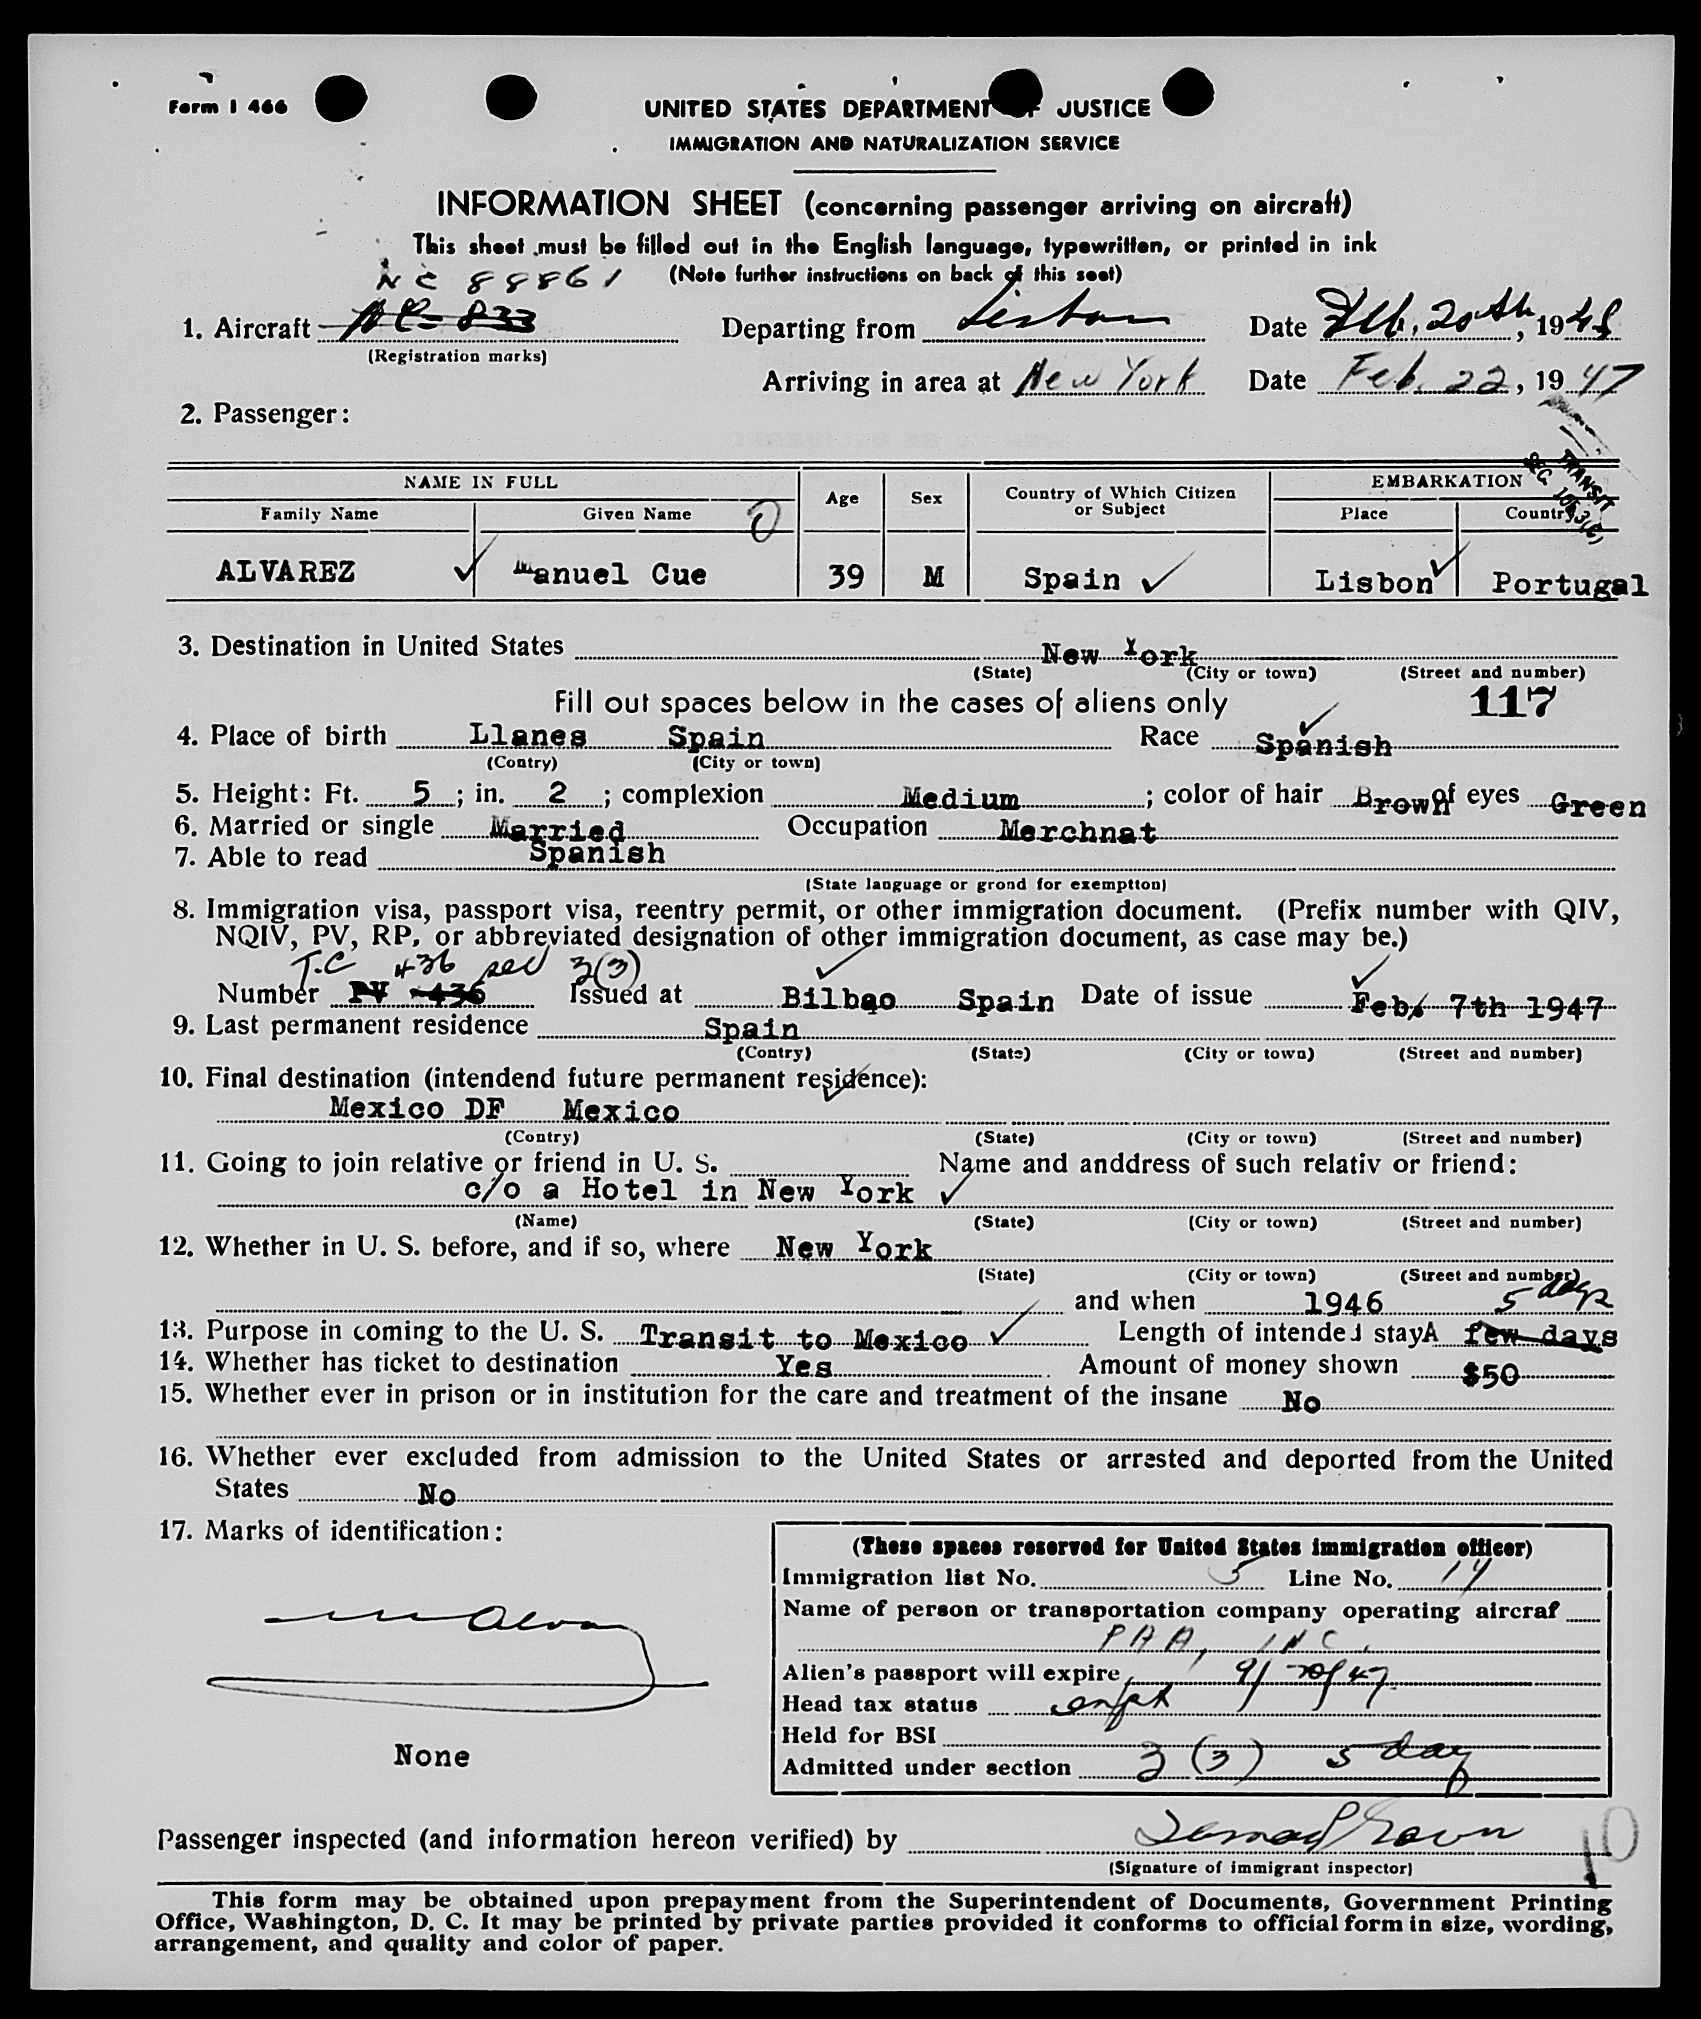 Form I 466
UNITED STATES DEPARTMENT OF JUSTICE
IMMIGRATION AND NATURALIZATION SERVICE
INFORMATION SHEET (concerning passenger arriving on aircraft)
This sheet must be filled out in the English language, typewritten, or printed in ink
NC 88861 (Note further instructions on back of this seet)
1. Aircraft Departing from Lisbon Date Feb. 20th, 1948
(Registration marks)
Arriving in area at New York Date Feb. 22, 1947
2. Passenger:
TRANSIT
SEC
NAME IN FULL Age Sex Country of Which Citizen or Subject EMBARKATION
Family Name Given Name Place Country
ALVAREZ Manuel Cue 39 M Spain Lisbon Portugal
3. Destination in United States New York
(State) (City or town) (Street and number)
Fill out spaces below in the cases of aliens only 117
4. Place of birth Llanes Spain Race Spanish
(Contry) (City or town)
5. Height: Ft. 5; in. 2; complexion Medium; color of hair Brown of eyes Green
6. Married or single Married Occupation Merchnat
7. Able to read Spanish
(State language or grond for exemption)
8. Immigration visa, passport visa, reentry permit, or other immigration document. (Prefix number with QIV,
NQIV, PV, RP, or abbreviated designation of other immigration document, as case may be.)
T.C 436 sec 3(3)
Number PV -436 Issued at Bilbao Spain Date of issue Feb. 7th 1947
9. Last permanent residence Spain
(Contry) (State) (City or town) (Street and number)
10. Final destination (intendend future permanent residence):
Mexico DF Mexico
(Contry) (State) (City or town) (Street and number)
11. Going to join relative or friend in U. S. Name and anddress of such relativ or friend:
c/o a Hotel in New York
(Name) (State) (City or town) (Street and number)
12. Whether in U. S. before, and if so, where New York
(State) (City or town) (Street and number)
and when 1946 5 days
13. Purpose in coming to the U. S. Transit to Mexico Length of intended stay A few days
14. Whether has ticket to destination Yes Amount of money shown $50
15. Whether ever in prison or in institution for the care and treatment of the insane No
16. Whether ever excluded from admission to the United States or arrested and deported from the United
States No
17. Marks of identification:
(These spaces reserved for United States immigration officer)
Immigration list No. 5 Line No. 14
Name of person or transportation company operating aircraf
PAA, INC.
Alien's passport will expire 9/20/47
Head tax status
Held for BSI
Admitted under section 3 (3) 5 day
None
Passenger inspected (and information hereon verified) by
(Signature of immigrant inspector)
10
This form may be obtained upon prepayment from the Superintendent of Documents, Government Printing
Office, Washington, D. C. It may be printed by private parties provided it conforms to official form in size, wording,
arrangement, and quality and color of paper.